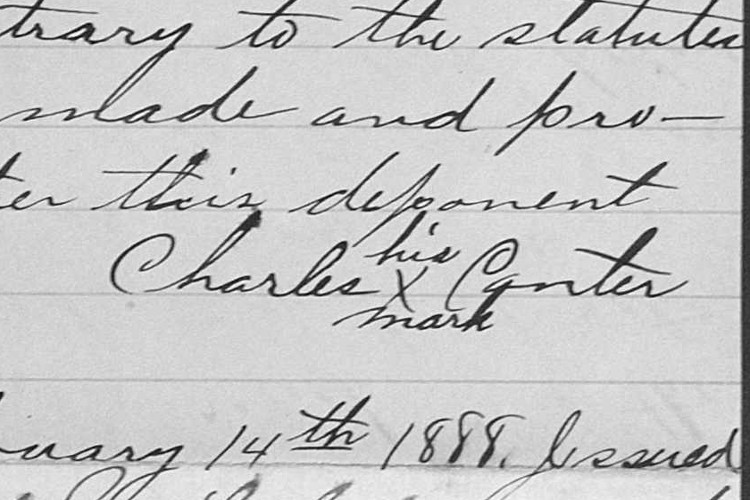 trary to the statutes
made and pro-
ter this deponent
his
Charles X Canter
mark
uary 14th 1888. Issued